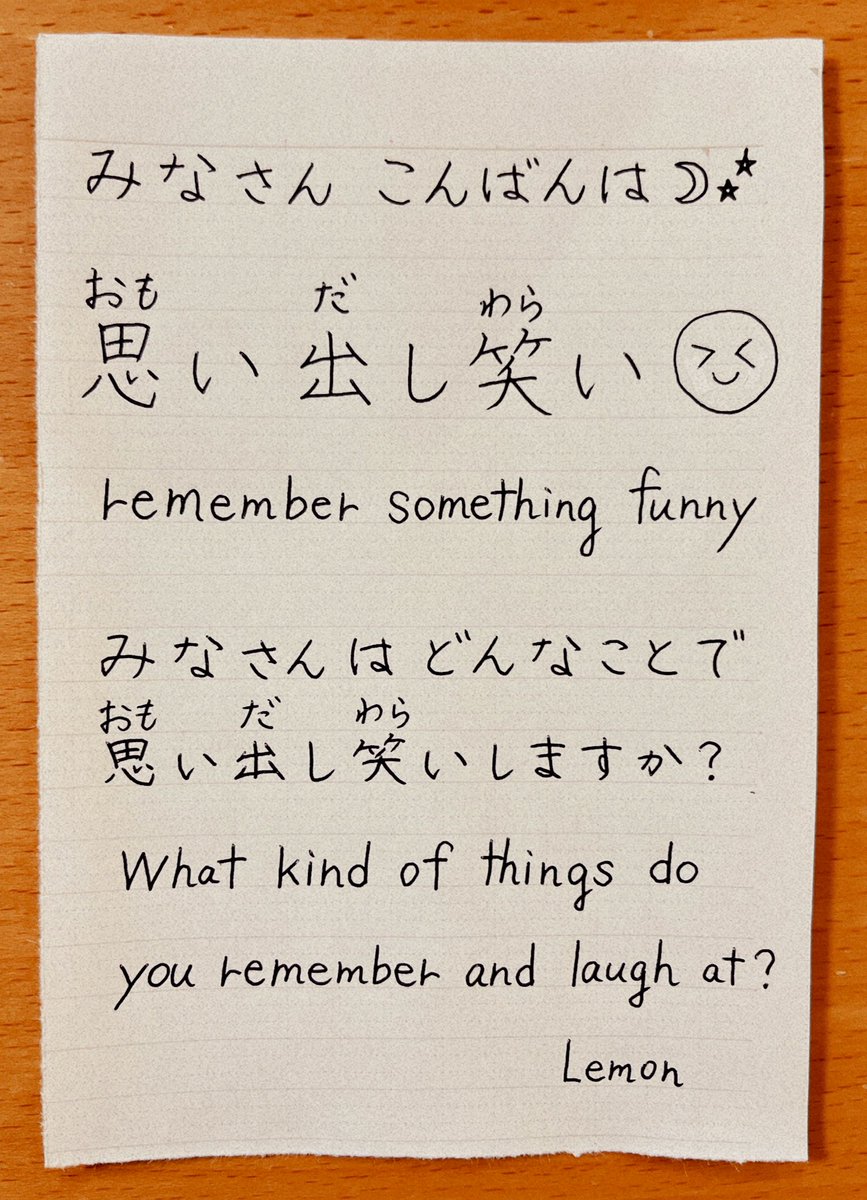 みなさん こんばんは☽⭐︎⭐︎
おも だ わら
思い出し笑い
remember something funny
みなさんは どんなことで
おも だ わら
思い出し笑いしますか？
What kind of things do
you remember and laugh at?
Lemon